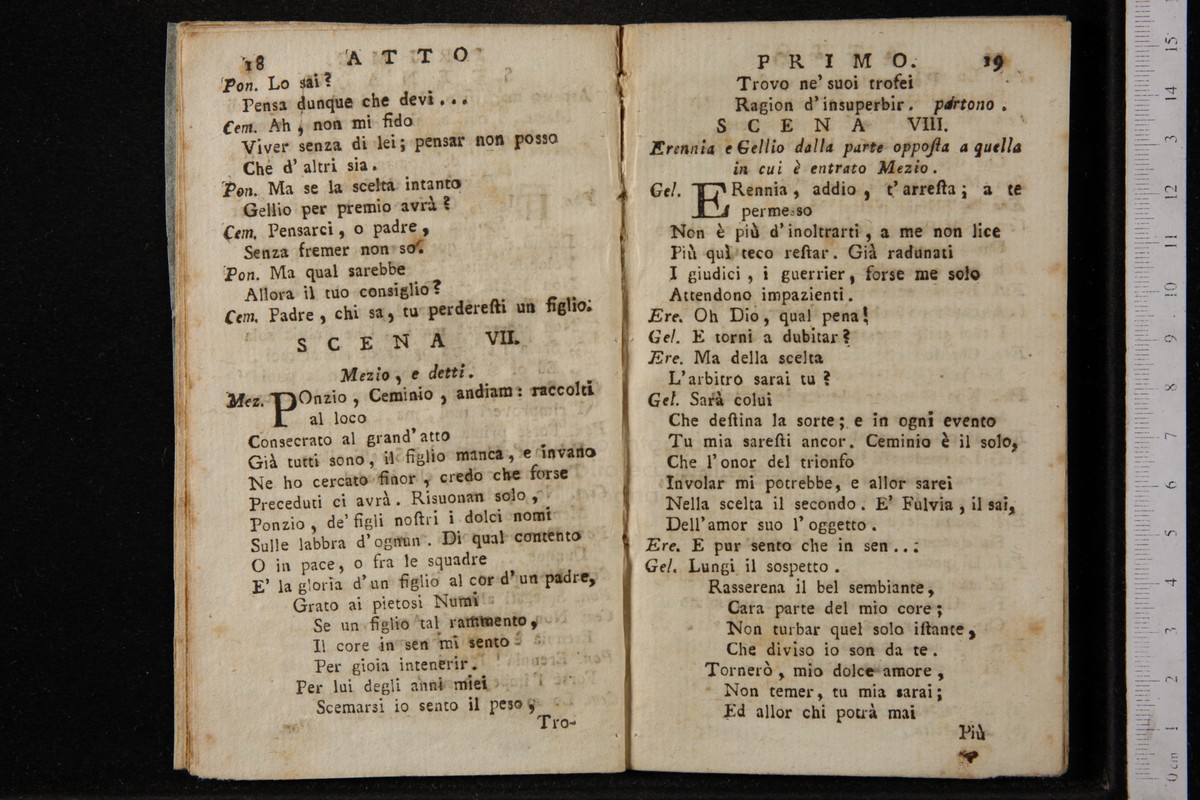 18 ATTO
Pon. Lo sai?
Pensa dunque che devi...
Cem. Ah, non mi fido
Viver senza di lei; pensar non posso
Che d' altri sia.
Pon. Ma se la scelta intanto
Gellio per premio avrà?
Cem. Pensarci, o padre,
Senza fremer non so.
Pon. Ma qual sarebbe
Allora il tuo consiglio?
Cem. Padre, chi sa, tu perderesti un figlio.
SCENA VII.
Mezio, e detti.
Mez. POnzio, Ceminio, andiam: raccolti
al loco
Consecrato al grand' atto
Già tutti sono, il figlio manca, e invano
Ne ho cercato finor, credo che forse
Preceduti ci avrà. Risuonan solo,
Ponzio, de' figli nostri i dolci nomi
Sulle labbra d'ognun. Di qual contento
O in pace, o fra le squadre
E' la gloria d'un figlio al cor d'un padre,
Grato ai pietosi Numi
Se un figlio tal rammento,
Il core in sen mi sento
Per gioia intenerir.
Per lui degli anni miei
Scemarsi io sento il peso,
Tro-
PRIMO. 19
Trovo ne' suoi trofei
Ragion d'insuperbir. partono.
SCENA VIII.
Erennia e Gellio dalla parte opposta a quella
in cui è entrato Mezio.
Gel. ERennia, addio, t' arresta; a te
permesso
Non è più d'inoltrarti, a me non lice
Più quì teco restar. Già radunati
I giudici, i guerrier, forse me solo
Attendono impazienti.
Ere. Oh Dio, qual pena!
Gel. E torni a dubitar?
Ere. Ma della scelta
L'arbitro sarai tu?
Gel. Sarà colui
Che destina la sorte; e in ogni evento
Tu mia saresti ancor. Ceminio è il solo,
Che l'onor del trionfo
Involar mi potrebbe, e allor sarei
Nella scelta il secondo. E' Fulvia, il sai,
Dell'amor suo l'oggetto.
Ere. E pur sento che in sen...
Gel. Lungi il sospetto.
Rasserena il bel sembiante,
Cara parte del mio core;
Non turbar quel solo istante,
Che diviso io son da te.
Tornerò, mio dolce amore,
Non temer, tu mia sarai;
Ed allor chi potrà mai
Più
0 cm 1 2 3 4 5 6 7 8 9 10 11 12 13 14 15